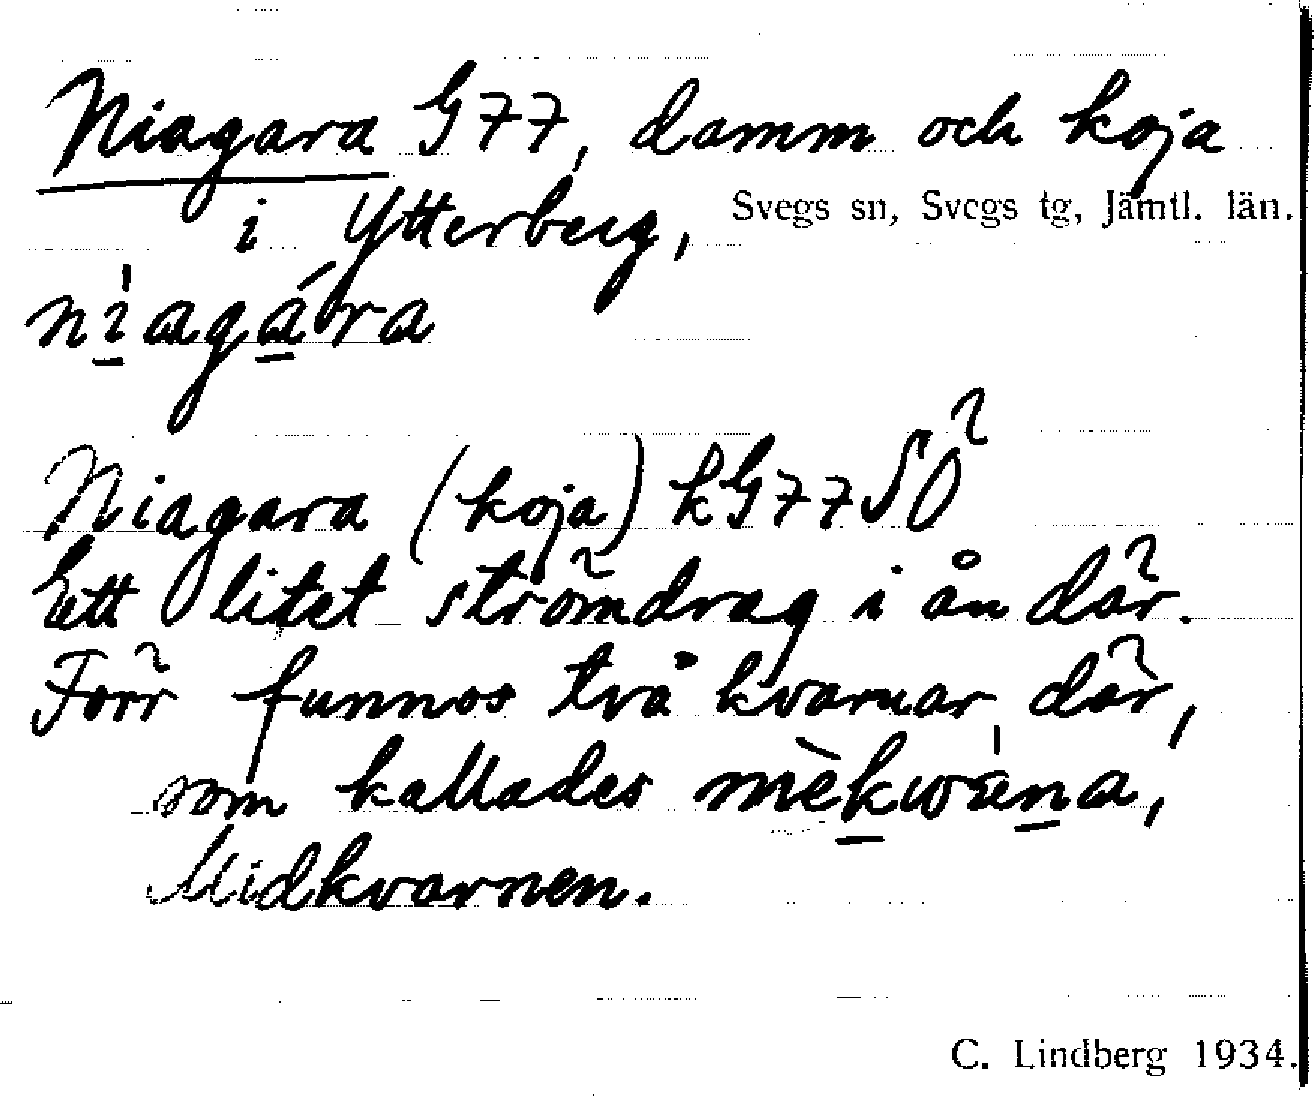 Niagara G77, damm och koja
i Ytterberg, Svegs sn, Svegs tg, Jämtl. län.
nìagára
Niagara (koja) kG77SÖ
Ett litet strömdrag i ån där.
Förr funnos två kvarnar där,
som kallades mèkwàna,
Midkvarnen.
C. Lindberg 1934.